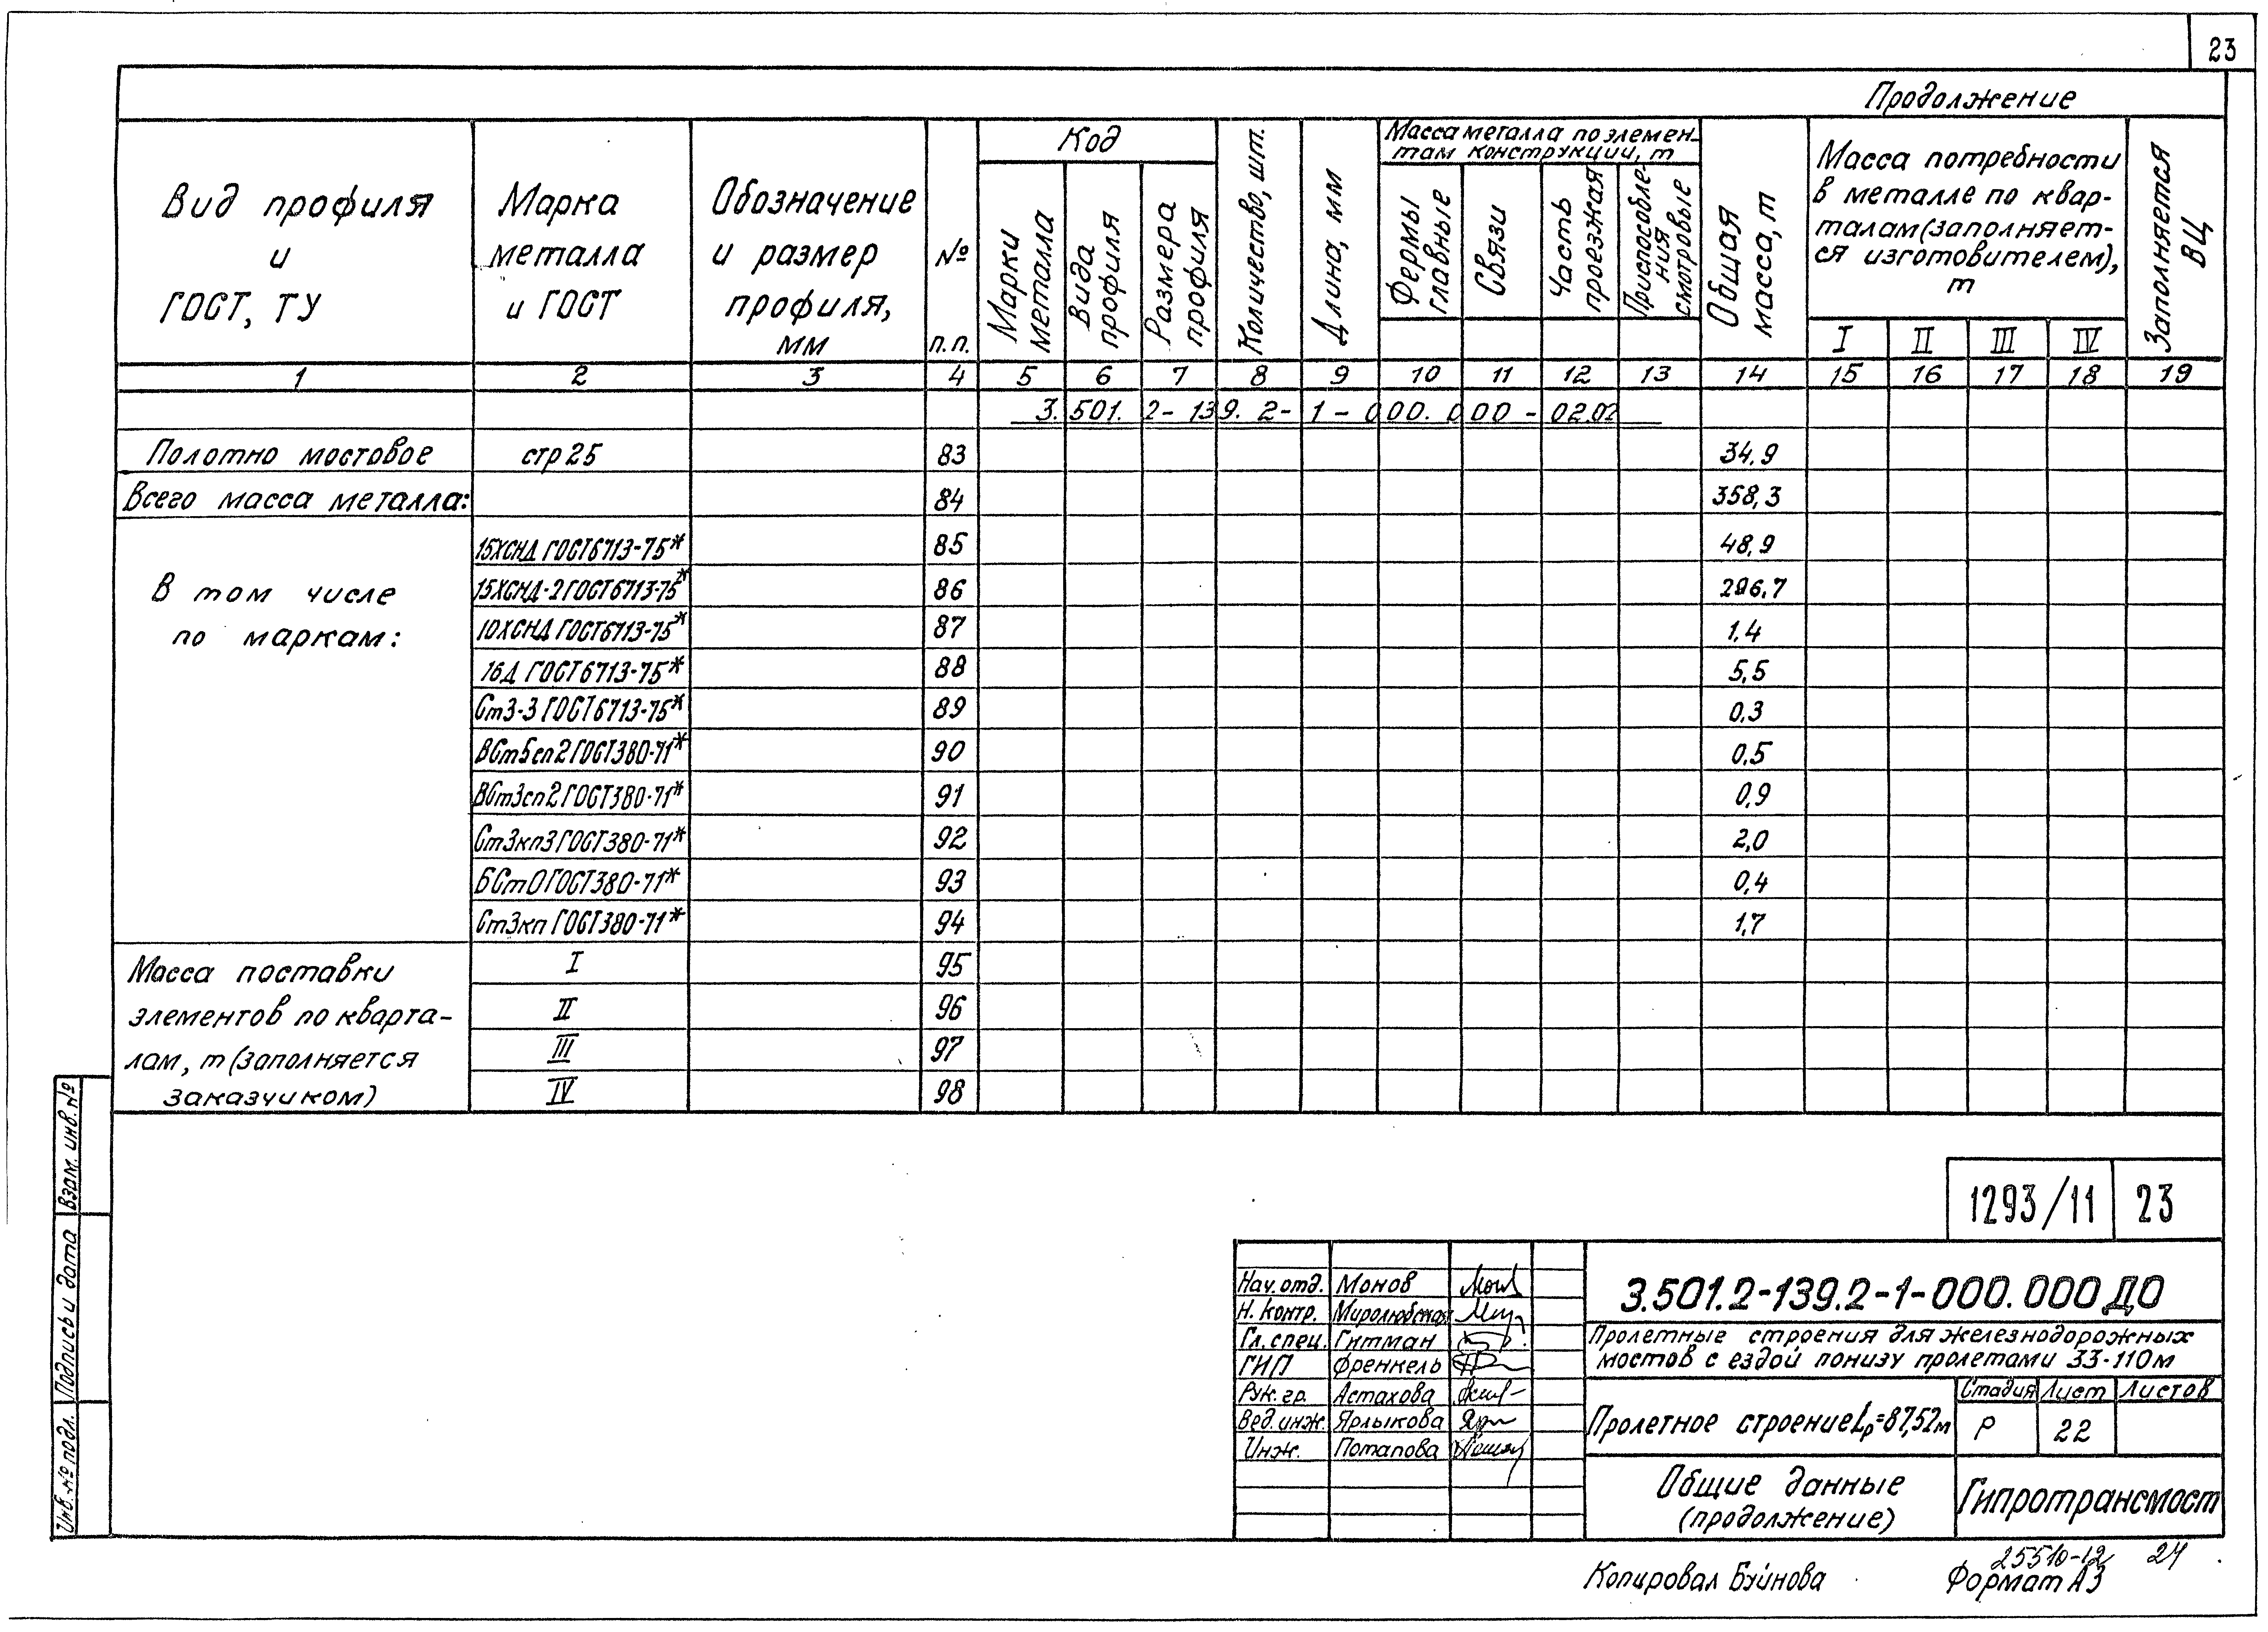 23
Продолжение
Вид профиля
и
ГОСТ, ТУ
Марка
металла
и ГОСТ
Обозначение
и размер
профиля,
мм
№
п.п.
Код
Марки
металла
Вида
профиля
Размера
профиля
Количество, шт.
Длина, мм
Масса металла по элемен-
там конструкции, т
Фермы
главные
Связи
Часть
проезжая
Приспособле-
ния
смотровые
Общая
масса, т
Масса потребности
в металле по квар-
талам (заполняет-
ся изготовителем),
т
I II III IV
Заполняется
ВЦ
1 2 3 4 5 6 7 8 9 10 11 12 13 14 15 16 17 18 19
3.501.2-139.2-1-000.000-02.02
Полотно мостовое стр 25 83 34.9
Всего масса металла: 84 358,3
В том числе
по маркам:
15ХСНД ГОСТ6713-75* 85 48,9
15ХСНД-2 ГОСТ6713-75* 86 296,7
10ХСНД ГОСТ6713-75* 87 1,4
16Д ГОСТ6713-75* 88 5,5
Ст3-3 ГОСТ6713-75* 89 0,3
ВСт5сп2 ГОСТ380-71* 90 0,5
ВСт3сп2 ГОСТ380-71* 91 0,9
Ст3кп3 ГОСТ380-71* 92 2,0
БСт0 ГОСТ380-71* 93 0,4
Ст3кп ГОСТ380-71* 94 1,7
Масса поставки
элементов по кварта-
лам, т (заполняется
заказчиком)
I 95
II 96
III 97
IV 98
Взам. инв. №
Подпись и дата
Инв. № подл.
1293/11 23
Нач. отд. Монов
Н. контр. Миролюбская
Гл. спец. Гитман
ГИП Френкель
Рук. гр. Астахова
Вед. инж. Ярлыкова
Инж. Потапова
3.501.2-139.2-1-000.000 ДО
Пролетные строения для железнодорожных
мостов с ездой понизу пролетами 33-110м
Пролетное строение Lр=87,52м
Стадия Лист Листов
Р 22
Общие данные
(продолжение)
Гипротрансмост
Копировал Буйнова
Формат А3
25510-12 24